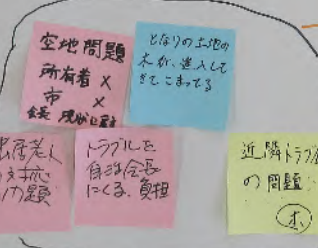 空地問題
所有者 ×
市 ×
会長
となりの土地の
木が、進入して
きてこまってる
対応
問題
トラブルを
自治会長
にくる。負担
近隣トラブル
の問題